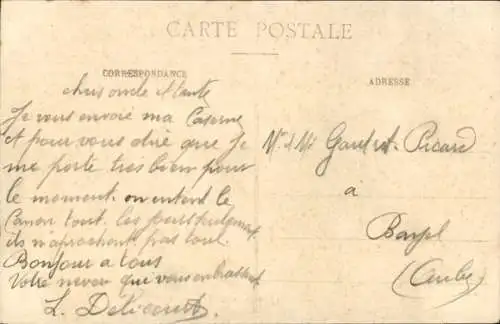 CARTE POSTALE
CORRESPONDANCE
ADRESSE
chers oncle et tante
Je vous envoie ma Caserne
et pour vous dire que je
me porte tres bien pour
le moment on entent le
Canon tout les jours seulement
ils n'aprochent pas tout
Bonjour a tous
Votre neveu qui vous embrassent
L.
Mr & Me Picard
à
Bayel
(Aube)